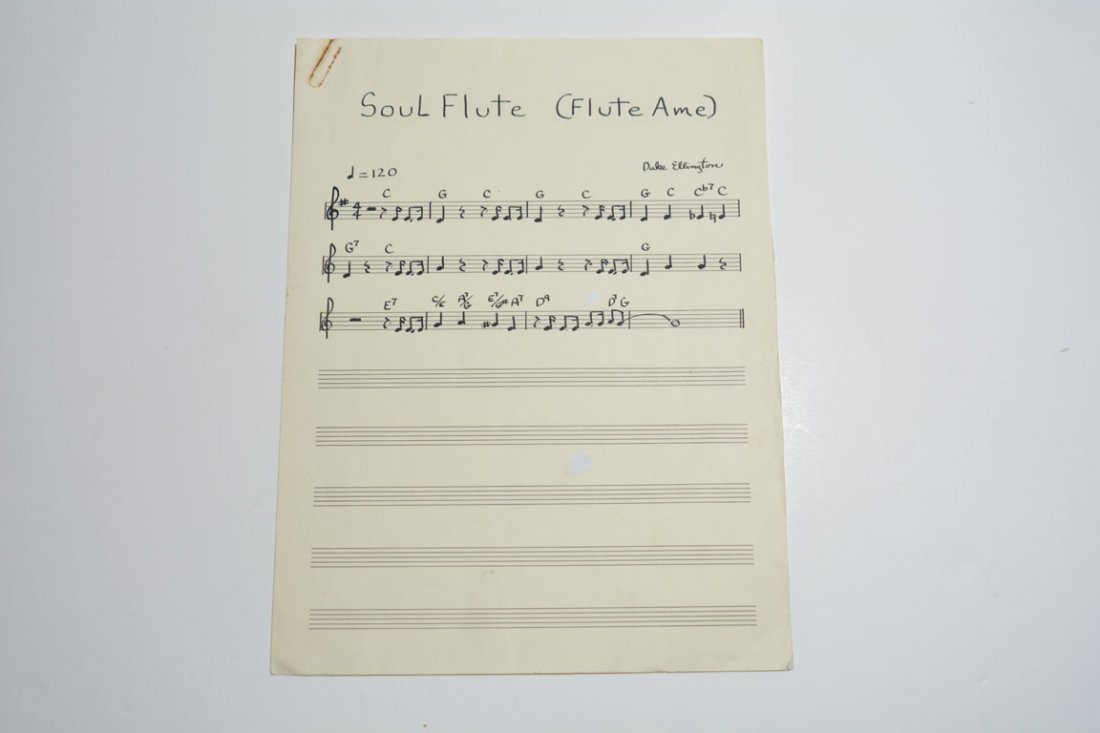 Soul Flute (Flute Ame)
♩ = 120
Duke Ellington
C G C G C G C Cb7 C
G7 C G
E7 C/E A7/G E7/G# A7 D9 D7 G